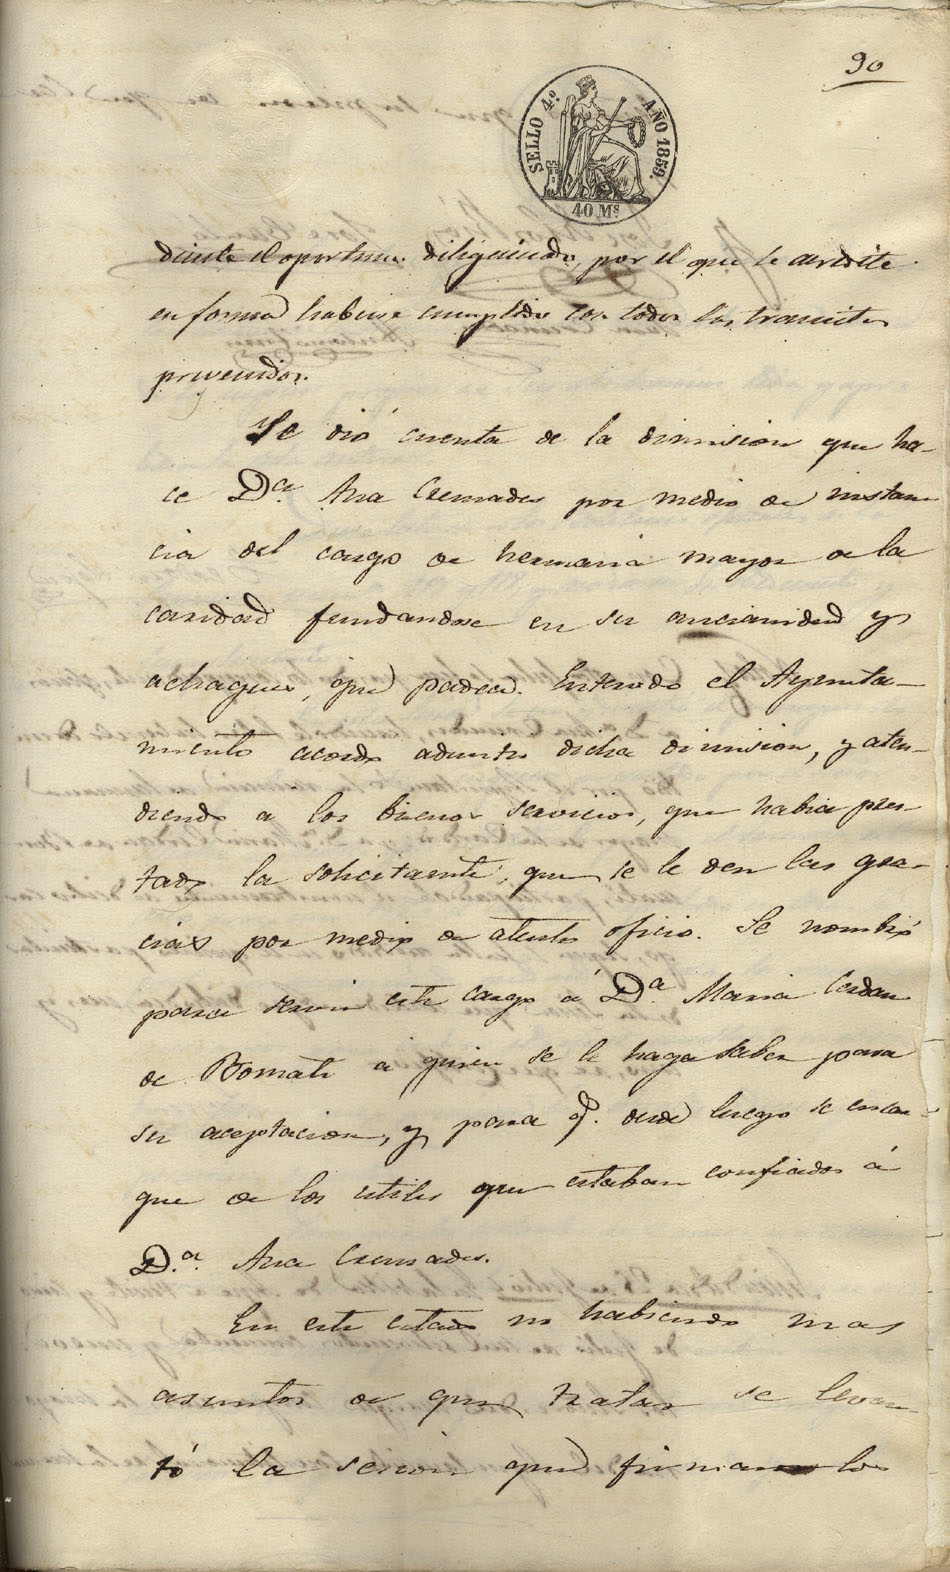 90
SELLO 4.º AÑO 1859.
40 Ms
diente el oportuno diligenciado, por el que se acredite
en forma haberse cumplido con todos los tramites
prevenidos.
Se dió cuenta de la dimision que ha-
ce D.a Ana Cremades por medio de instan
cia del cargo de hermana mayor de la
caridad fundandose en su ancianidad y
achaques, que padece. Enterado el Ayunta-
miento acordó admitir dicha dimision, y aten-
diendo a los buenos servicios, que habia pres
tado la solicitante, que se le den las gra-
cias por medio de atento oficio. Se nombró
para servir este cargo á D.a Maria Cerdan
de Bomati a quien se le haga saber para
su aceptacion, y para q.e desde luego se encar-
gue de los utiles que estaban confiados á
D.a Ana Cremades.
En este estado no habiendo mas
asuntos de que tratar se levan
tó la sesion que firman los